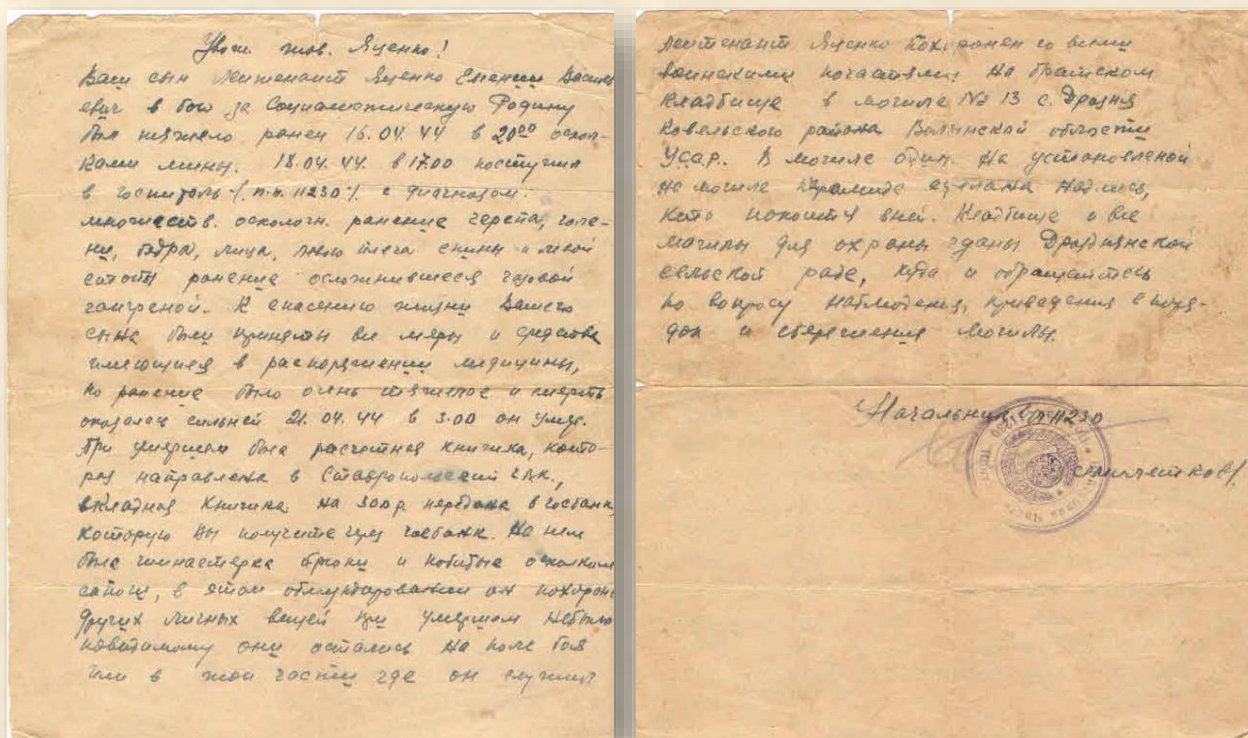 Уваж. тов. Яценко!
Ваш сын Лейтенант Яценко Евгений Василь
евич в бою за Социалистическую Родину
был тяжело ранен 16.04.44 в 20⁰⁰ оскол-
ками мины. 18.04.44. в 17.00 поступил
в госпиталь /п.п. 11230/ с диагнозом.
множеств. осколочн. ранение черепа, голе-
ни, бедра, лица, плеча спины и левой
стопы ранение осложнившееся газовой
гангреной. К спасению жизни Вашего
сына были приняты все меры и средства
имеющиеся в распоряжении медицины,
но ранение было очень тяжелое и смерть
оказалась сильней 21.04.44 в 3.00 он умер.
При умершем была расчетная книжка, кото-
рая направлена в Ставропольский
вкладная книжка на 300 р. передана в госбанк,
которую вы получите чрез госбанк. На нем
была гимнастерка брюки и побитые осколками
сапоги, в этом обмундировании он похорон
других личных вещей при умершем небыло
повидимому они остались на поле боя
или в той части где он служил
Лейтенант Яценко похоронен со всеми
воинскими почестями на братском
кладбище в могиле № 13 с. Дрозня
Ковельского района Волынской области
УССР. В могиле один. На установленой
на могиле пирамиде сделана надпись,
кто покоится вней. Кладбище и все
могилы для охраны сданы Дрознянской
сельской раде, куда и обращайтесь
по вопросу наблюдения, приведения в поря-
док и сбережения могилы.
Начальник 11230